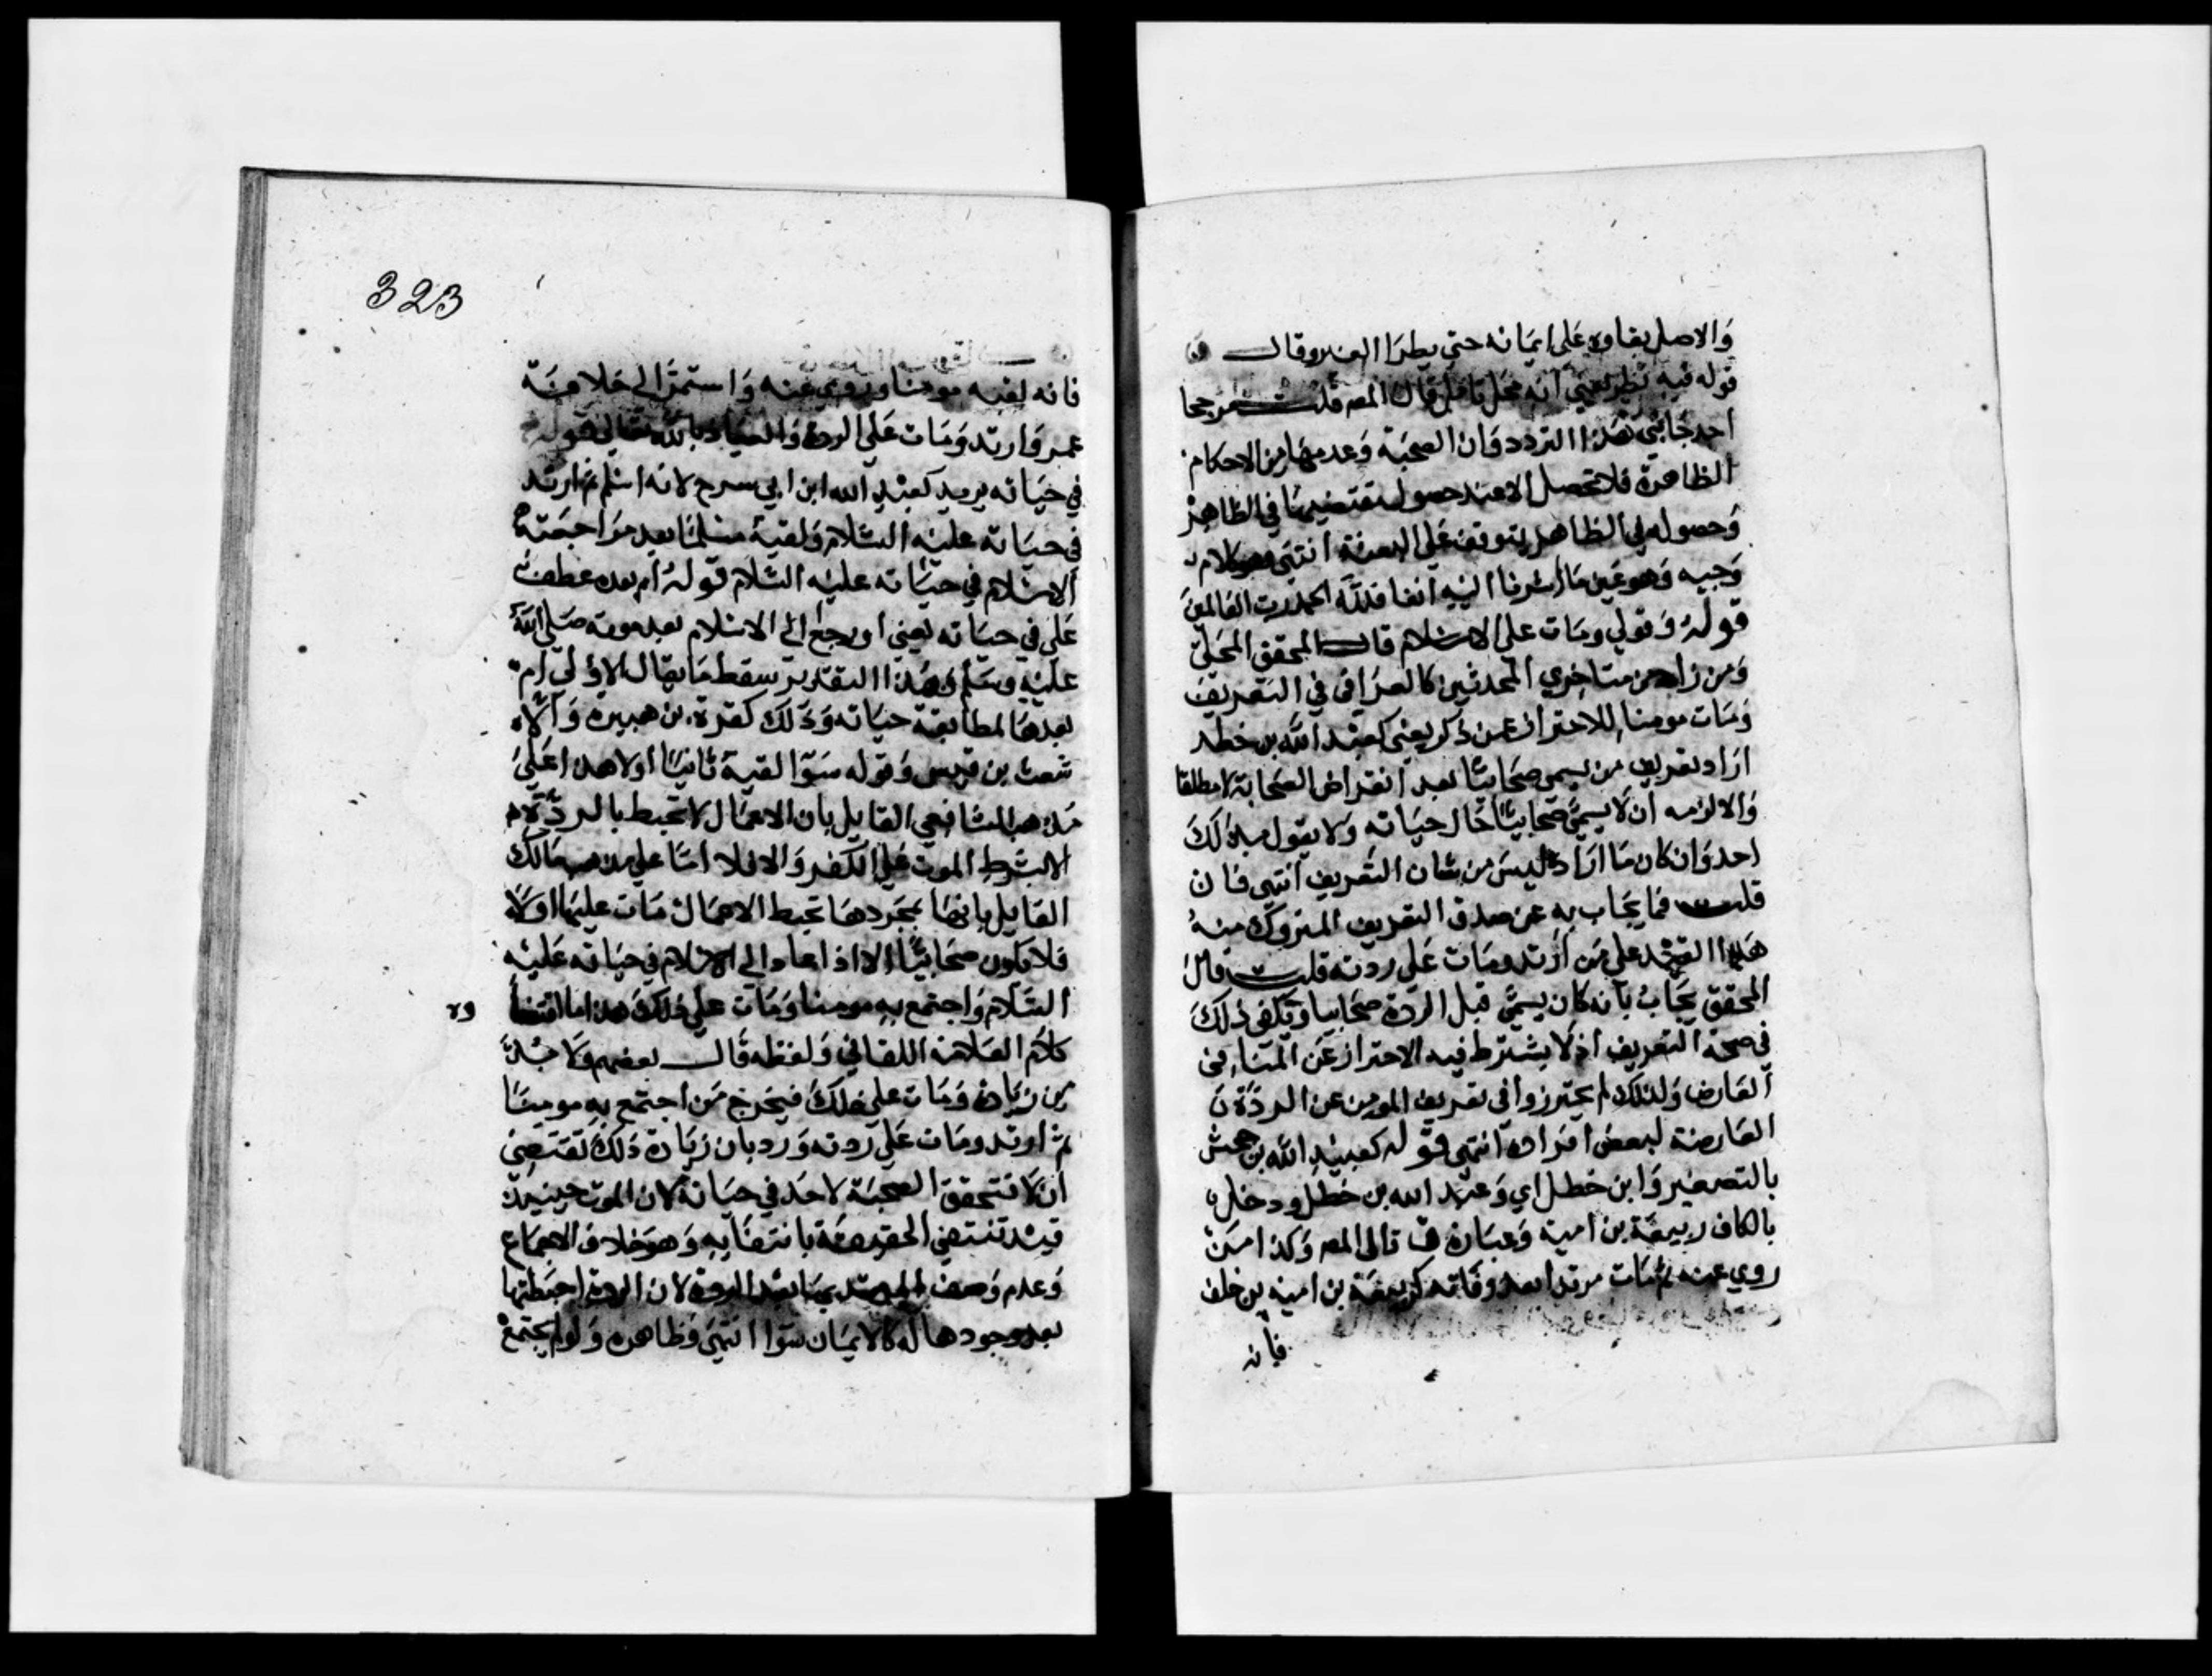 والاصل بقاوه على ايمانه حتى يطرا الضد وقال
قوله فيه نظر يعني انه محل تامل قال المص قلت مرجحا
احد جانبي هذا التردد وان الصحبة وعدمها من الاحكام
الظاهرة فلا تحصل الا عند حصول مقتضيها في الظاهر
وحصوله في الظاهر يتوقف على البعثة انتهى وهو كلام
وجيه وهو عين ما اشرنا اليه انفا فلله الحمد رب العالمين
قوله وقولي ومات على الاسلام قال المحقق المحلي
ومن زاد من متاخري المحدثين كالعراقي في التعريف
ومات مومنا للاحتراز عمن ذكر يعني كعبد الله بن خطل
اراد تعريف من يسمى صحابيا بعد انقراض الصحابة لا مطلقا
والا لزمه ان لا يسمى صحابيا حال حياته ولا يقول بذلك
احد وان كان ما اراده ليس من شان التعريف انتهى فان
قلت فما يجاب به عن صدق التعريف المتروك منه
هذا القيد على من ارتد ومات على ردته قلت قال
المحقق يجاب بانه كان يسمى قبل الردة صحابيا ويكفي ذلك
في صحة التعريف اذ لا يشترط فيه الاحتراز عن المنافي
العارض ولذلك لم يحترزوا في تعريف المومن عن الردة
العارضة لبعض افراده انتهى قوله كعبيد الله بن جحش
بالتصغير وابن خطل اي وعبد الله بن خطل ودخل
بالكاف ربيعة بن امية وعبارة ق تالي المص وكذا من
روي عنه ثم مات مرتدا بعد وفاته كربيعة بن امية بن خلف
فانه
323
فانه لقيه مومنا وروى عنه واستمر الى خلافة
عمر وارتد ومات على الردة والعياذ بالله تعالى قوله
في حياته يريد كعبد الله ابن ابي سرح لانه اسلم ثم ارتد
في حياته عليه السلام ولقيه مسلما بعد مراجعته
الاسلام في حياته عليه السلام قوله ام بعده عطف
على في حياته يعني او رجع الى الاسلام بعد موته صلى الله
عليه وسلم وبهذا التقدير سقط ما يقال الاولى ام
بعدها لمطابقة حياته وذلك كقرة بن هبيرة والا
شعث بن قيس وقوله سوا لقيه ثانيا اولا هذا على
مذهب الشافعي القايل بان الاعمال لا تحبط بالردة
الا بشرط الموت على الكفر والا فلا اما على مذهب مالك
القايل بانها بمجردها تحبط الاعمال مات عليها اولا
فلا يكون صحابيا الا اذا عاد الى الاسلام في حياته عليه
السلام واجتمع به مومنا ومات على ذلك هذا ما اقتضا
كلام العلامة اللقاني ولفظه قال بعضهم ولا بد
من زيادة ومات على ذلك فيخرج من اجتمع به مومنا
ثم ارتد ومات على ردته ورد بان زيادة ذلك تقتضي
ان لا تتحقق الصحبة لاحد في حياته لان الموت حينيذ
قيد تنتفي الحقيقة بانتفايه وهو خلاف الاجماع
وعدم وصف المرتد بها بعد الردة لان الردة احبطتها
بعد وجودها له كالايمان سوا انتهى وظاهره ولو لم يجتمع